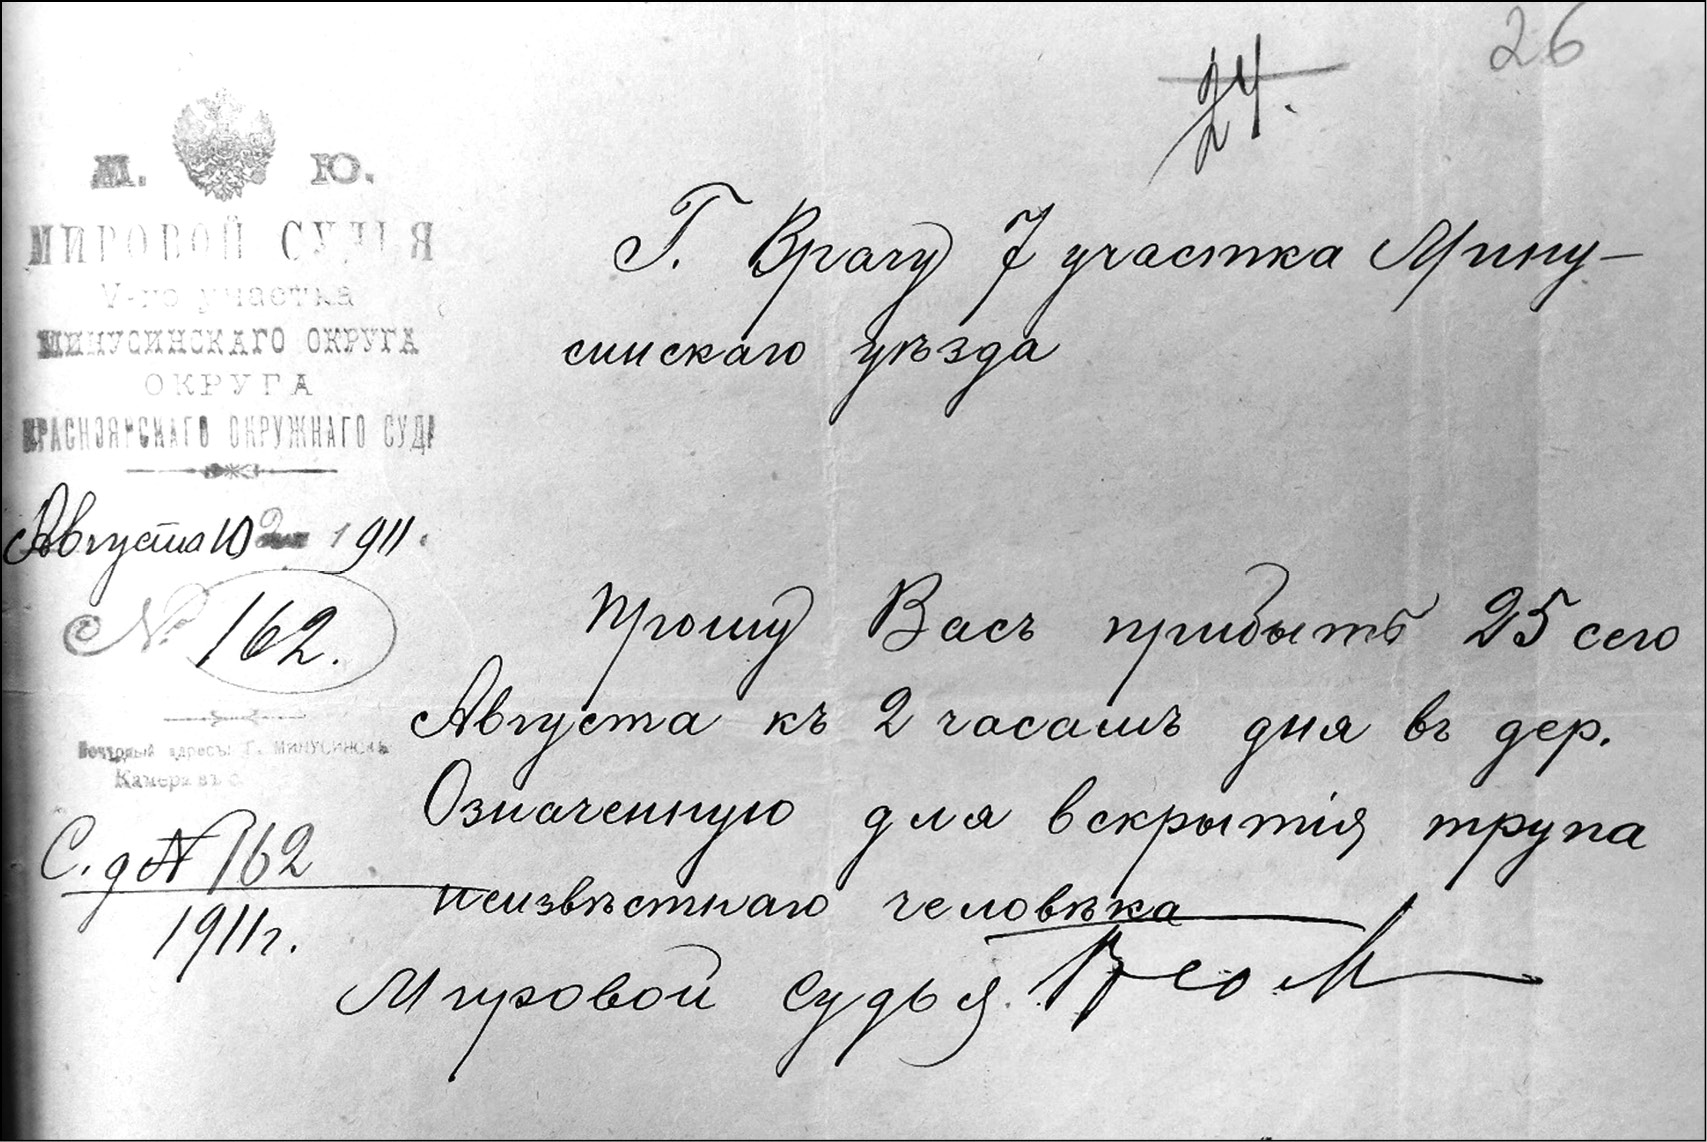 26
24.
М. Ю.
МИРОВОЙ СУДЬЯ
V-го участка
МИНУСИНСКАГО ОКРУГА
ОКРУГА
КРАСНОЯРСКАГО ОКРУЖНАГО СУДА
Августа 10 1911.
№ 162.
Почтовый адресъ: Г. МИНУСИНСКЪ
Камера въ с.
С. д № 162
1911 г.
Г. Врачу 7 участка Мину-
синскаго уѣзда
Прошу Васъ прибыть 25 сего
Августа къ 2 часамъ дня въ дер.
Означенную для вскрытія трупа
неизвѣстнаго человѣка
Мировой Судья